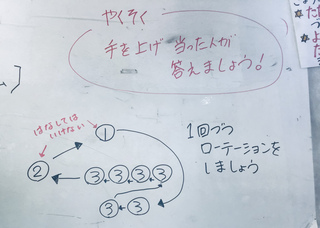 やくそく
手を上げ 当った人が
答えましょう!
はなしては
いけない
①
②
③ ③ ③ ③
③ ③
1回づつ
ローテーションを
しましょう